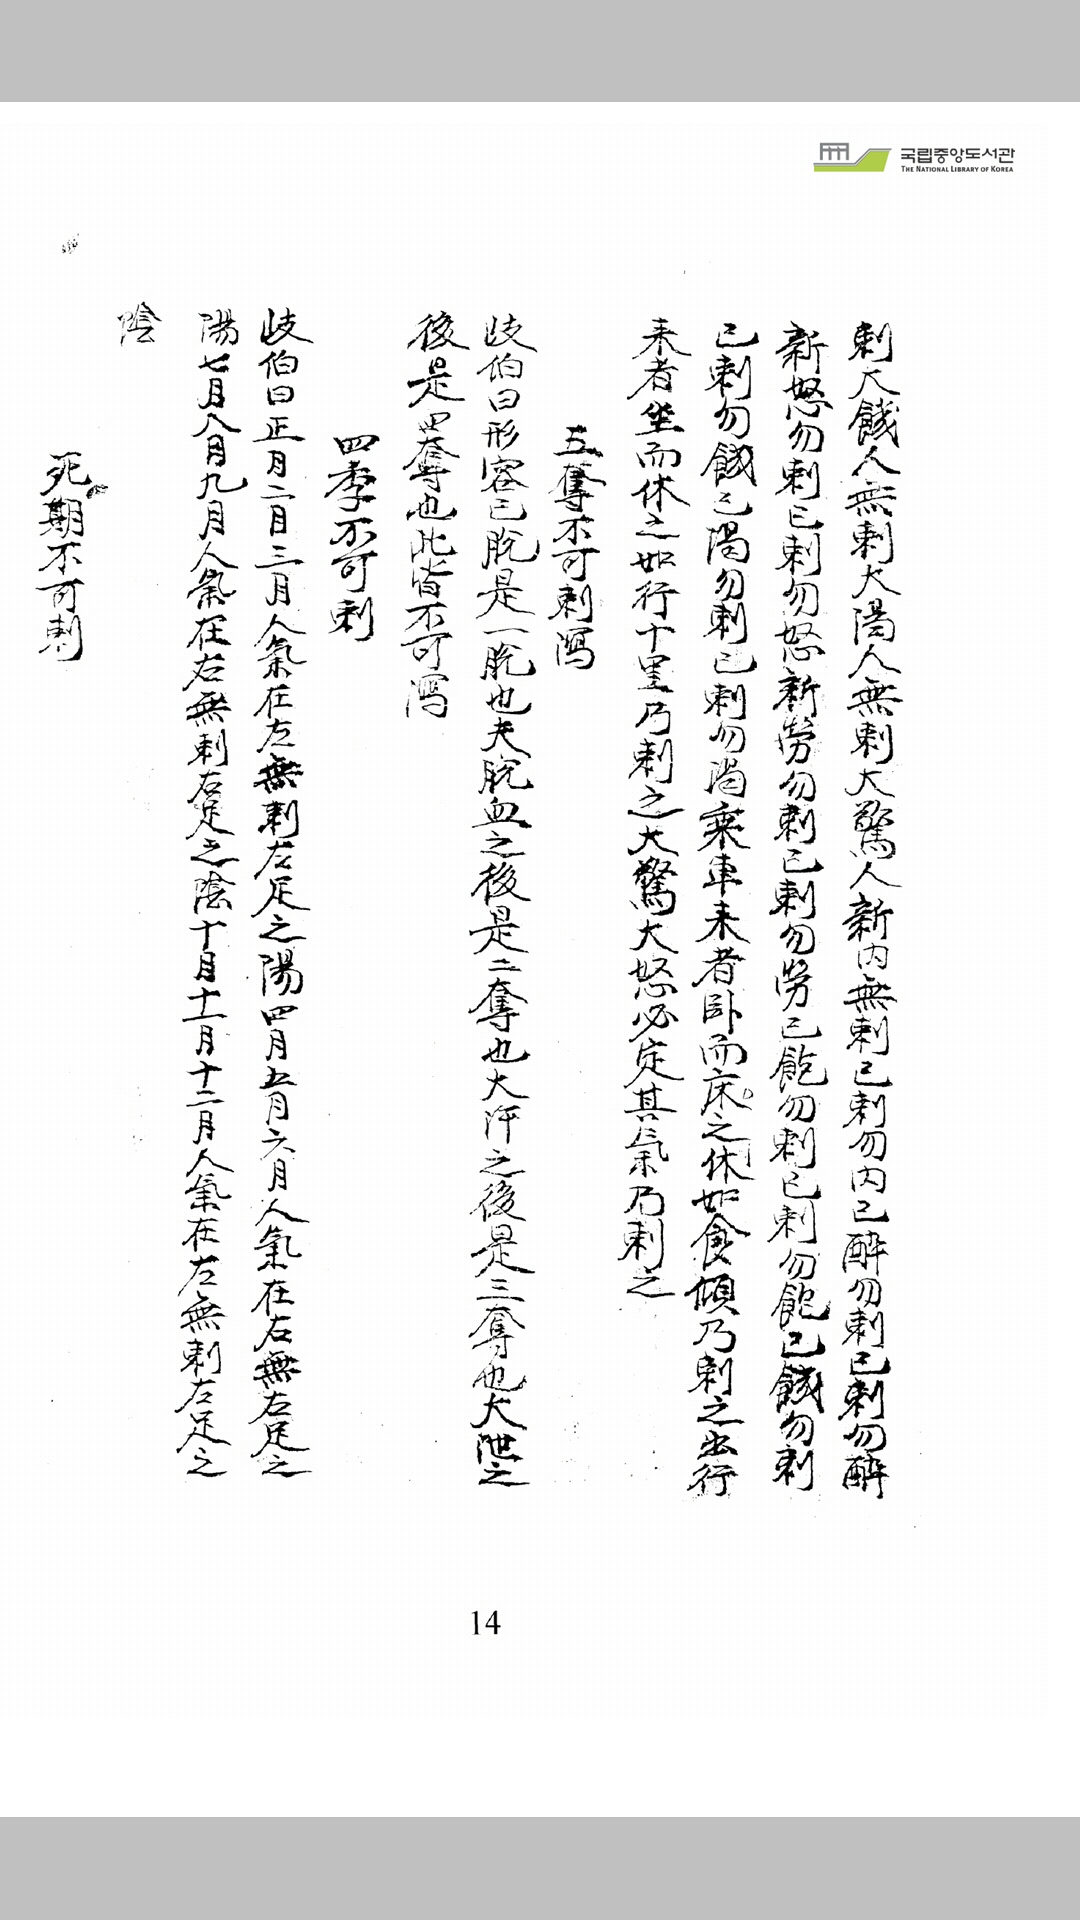 국립중앙도서관
THE NATIONAL LIBRARY OF KOREA
刺大餓人無刺大渴人無刺大驚人新內無刺已刺勿內已醉勿刺已刺勿醉
新怒勿刺已刺勿怒新勞勿刺已刺勿勞已飽勿刺已刺勿飽已餓勿刺
已刺勿餓已渴勿刺已刺勿渴乘車来者卧而床之休如食傾乃刺之出行
来者坐而休之如行十里乃刺之大驚大怒必定其氣乃刺之
五奪不可刺瀉
歧伯曰形容已脫是一脫也夫脫血之後是二奪也大汗之後是三奪也大泄之
後是四奪也此皆不可瀉
四季不可刺
歧伯曰正月二月三月人氣在左無刺左足之陽四月五月六月人氣在右無右足之
陽七月八月九月人氣在右無刺右足之陰十月十一月十二月人氣在左無刺左足之
陰
死期不可刺
14